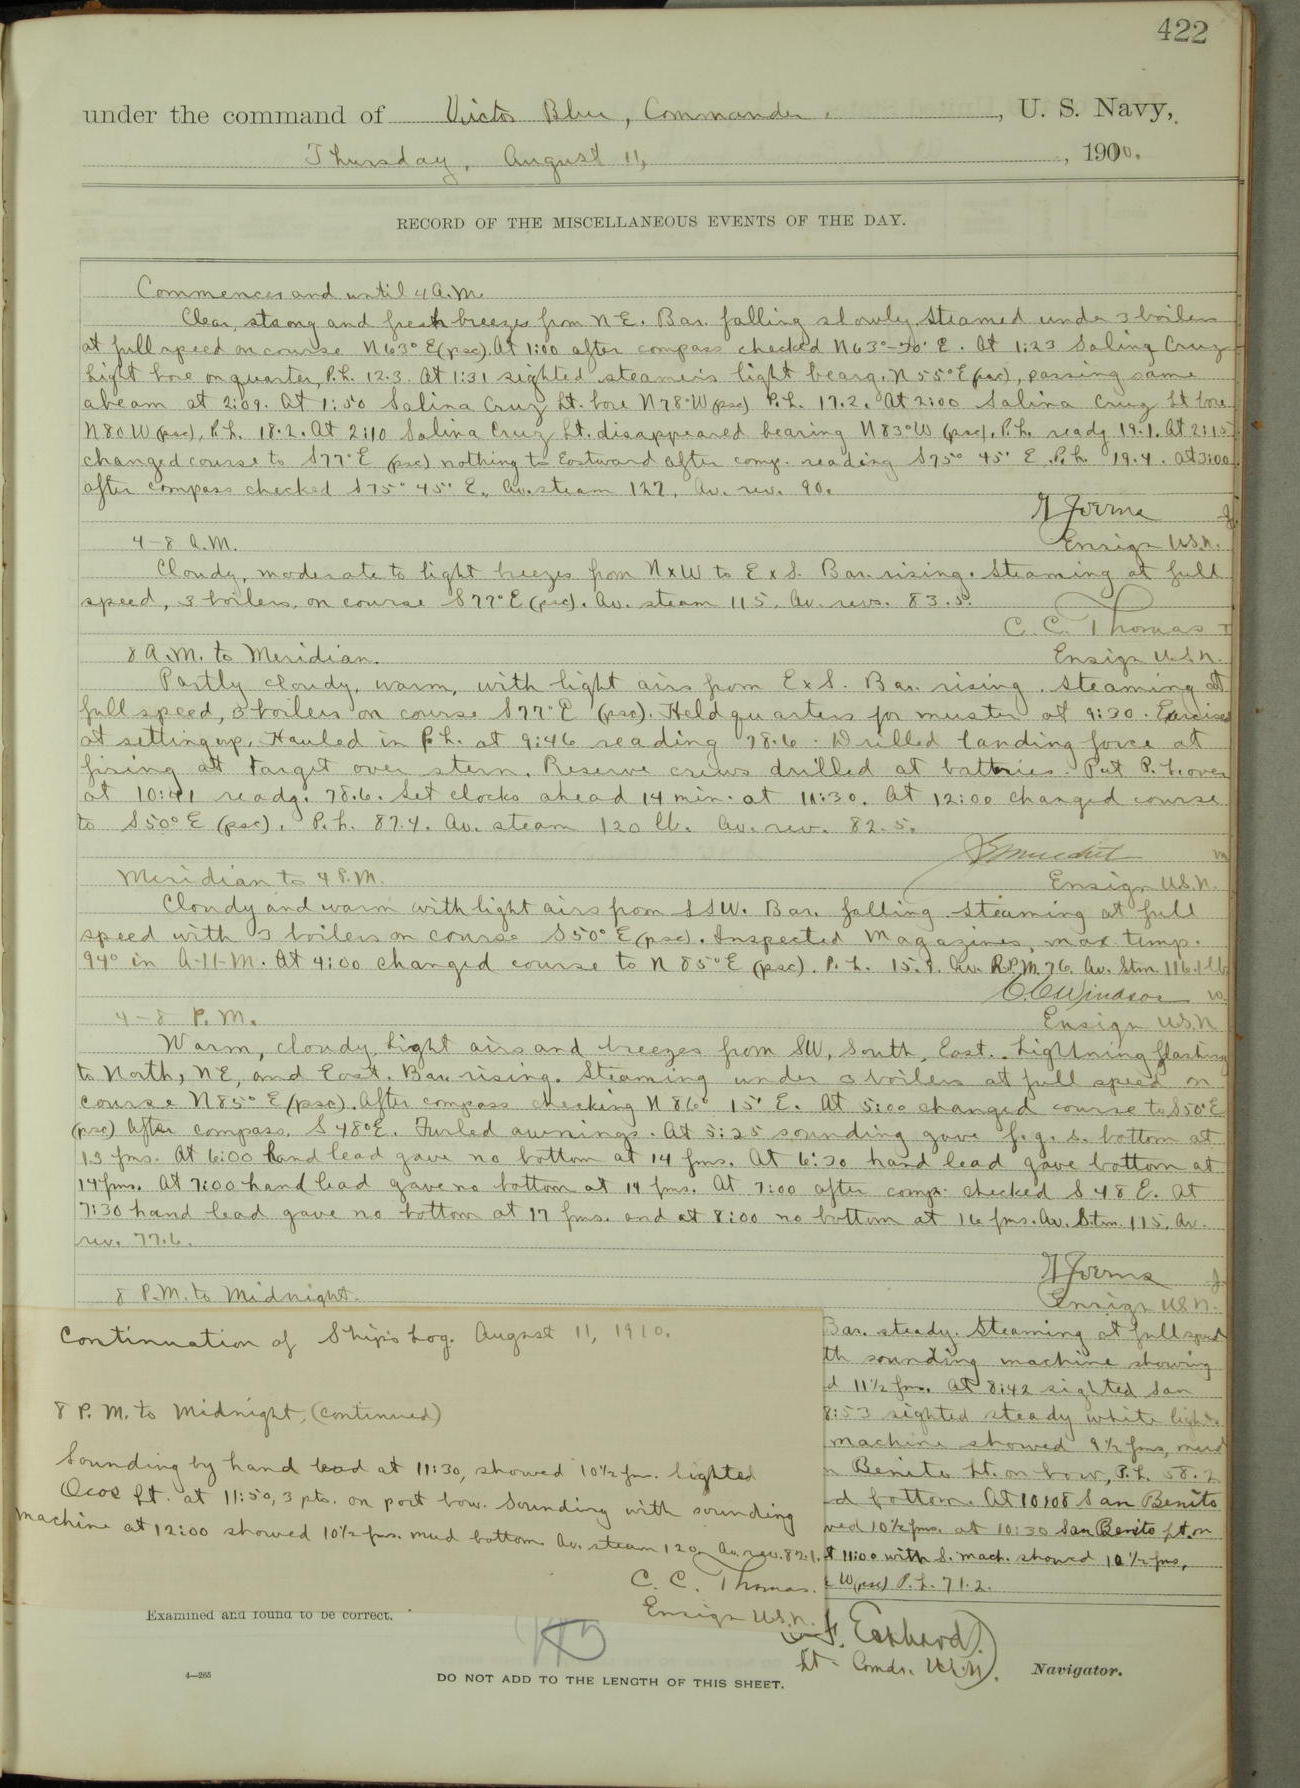 422
under the command of Victor Blue, Commander, U. S. Navy,
Thursday, August 11, 1910.
RECORD OF THE MISCELLANEOUS EVENTS OF THE DAY.
Commences and until 4 A.M.
Clear, strong and fresh breezes from N E. Bar. falling slowly. Steamed under 3 boilers
at full speed on course N 63° E (psc). At 1:00 after compass checked N 63°-30' E. At 1:23 Salina Cruz
Light bore on quarter, P.L. 12.3. At 1:31 sighted steamer's light bearg. N 55° E (psc), passing same
abeam at 2:09. At 1:50 Salina Cruz Lt. bore N 78° W (psc) P.L. 17.2. At 2:00 Salina Cruz Lt bore
N 80 W (psc), P.L. 18.2. At 2:10 Salina Cruz Lt. disappeared bearing N 83° W (psc). P.L. ready 19.1. At 2:15
changed course to S 77° E (psc) nothing to Eastward after comp. reading S 75° 45' E. P.L. 19.4. At 3:00
after compass checked S 75° 45' E. Av. steam 127. Av. rev. 90.
Ensign U.S.N.
4-8 A.M.
Cloudy, moderate to light breezes from N x W to E x S. Bar. rising. Steaming at full
speed, 3 boilers, on course S 77° E (psc). Av. steam 115. Av. revs. 83.5.
C. C. Thomas
Ensign U.S.N.
8 A.M. to Meridian.
Partly cloudy, warm, with light airs from E x S. Bar. rising. Steaming at
full speed, 3 boilers on course S 77° E (psc). Held quarters for muster at 9:30. Exercised
at setting up. Hauled in P.L. at 9:46 reading 78.6. Drilled landing force at
firing at target over stern. Reserve crews drilled at batteries. Put P.L. over
at 10:41 readg. 78.6. Set clocks ahead 14 min. at 11:30. At 12:00 changed course
to S 50° E (psc). P.L. 87.4. Av. steam 120 lb. Av. rev. 82.5.
Ensign U.S.N.
Meridian to 4 P.M.
Cloudy and warm with light airs from SSW. Bar. falling. Steaming at full
speed with 3 boilers on course S 50° E (psc). Inspected Magazines, max temp.
94° in A-11-M. At 4:00 changed course to N 85° E (psc). P.L. 15.9. Av. R.P.M. 76. Av. Stm. 116.1 lb
C. C. Windsor
Ensign U.S.N.
4-8 P.M.
Warm, cloudy. Light airs and breezes from SW, South, East. Lightning flashing
to North, NE, and East. Bar. rising. Steaming under 3 boilers at full speed on
course N 85° E (psc). After compass checking N 86° 15' E. At 5:00 changed course to S 50° E
(psc) after compass. S 48° E. Furled awnings. At 5:25 sounding gave f. g. s. bottom at
13 fms. At 6:00 hand lead gave no bottom at 14 fms. At 6:30 hand lead gave bottom at
14 fms. At 7:00 hand lead gave no bottom at 14 fms. At 7:00 after comp. checked S 48 E. At
7:30 hand lead gave no bottom at 17 fms. and at 8:00 no bottom at 16 fms. Av. Stm. 115. Av.
rev. 77.6.
Ensign U.S.N.
8 P.M. to Midnight.
Bar. steady. Steaming at full speed
th sounding machine showing
d 11½ fms. At 8:42 sighted San
8:53 sighted steady white light
machine showed 9½ fms, mud
n Benito Lt. on bow, P.L. 58.2
d bottom. At 10:08 San Benito
wed 10½ fms. at 10:30 San Benito Lt. on
t 11:00 with S. mach. showed 10½ fms,
W (psc) P.L. 71.2.
Continuation of Ship's Log. August 11, 1910.
8 P.M. to Midnight, (continued)
Sounding by hand lead at 11:30, showed 10½ fm. Sighted
Ocos Lt. at 11:50, 3 pts. on port bow. Sounding with sounding
machine at 12:00 showed 10½ fms. mud bottom. Av. steam 120. Av. rev. 82.1.
C. C. Thomas.
Ensign U.S.N.
Examined and found to be correct.
Lt. Comdr. U.S.N. Navigator.
4—265
DO NOT ADD TO THE LENGTH OF THIS SHEET.